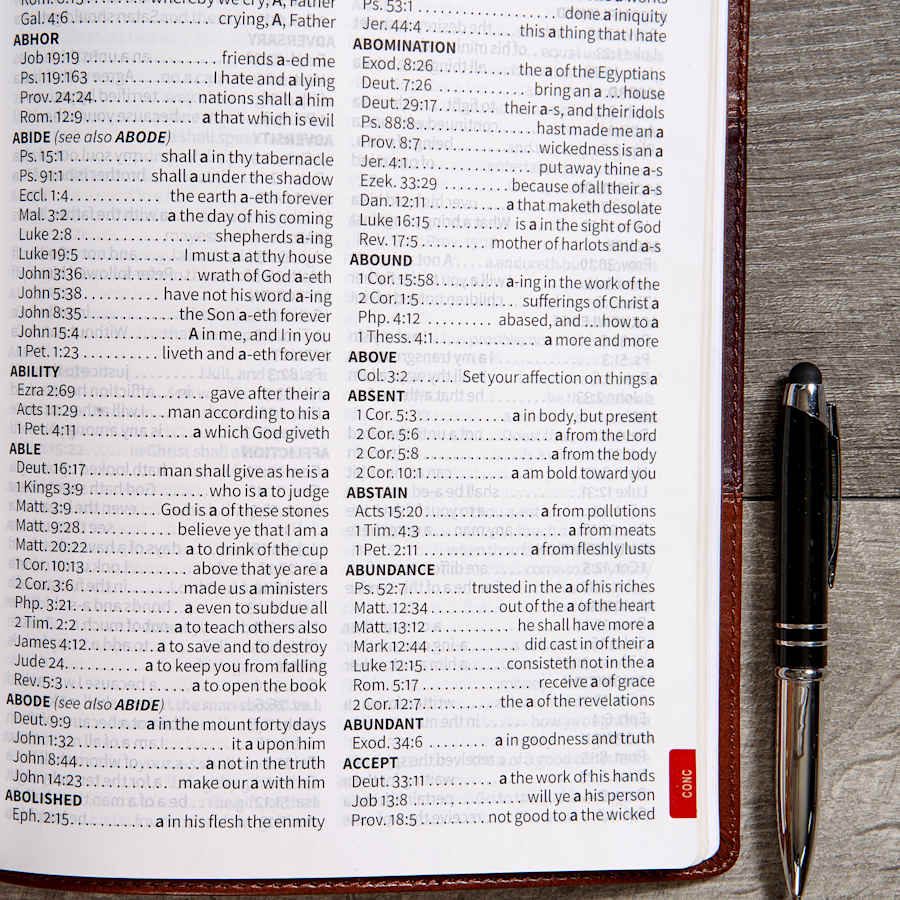 Rom. 8:15 whereby we cry, A, Father
Gal. 4:6 crying, A, Father
ABHOR
Job 19:19 friends a-ed me
Ps. 119:163 I hate and a lying
Prov. 24:24 nations shall a him
Rom. 12:9 a that which is evil
ABIDE (see also ABODE)
Ps. 15:1 shall a in thy tabernacle
Ps. 91:1 shall a under the shadow
Eccl. 1:4 the earth a-eth forever
Mal. 3:2 a the day of his coming
Luke 2:8 shepherds a-ing
Luke 19:5 I must a at thy house
John 3:36 wrath of God a-eth
John 5:38 have not his word a-ing
John 8:35 the Son a-eth forever
John 15:4 A in me, and I in you
1 Pet. 1:23 liveth and a-eth forever
ABILITY
Ezra 2:69 gave after their a
Acts 11:29 man according to his a
1 Pet. 4:11 a which God giveth
ABLE
Deut. 16:17 man shall give as he is a
1 Kings 3:9 who is a to judge
Matt. 3:9 God is a of these stones
Matt. 9:28 believe ye that I am a
Matt. 20:22 a to drink of the cup
1 Cor. 10:13 above that ye are a
2 Cor. 3:6 made us a ministers
Php. 3:21 a even to subdue all
2 Tim. 2:2 a to teach others also
James 4:12 a to save and to destroy
Jude 24 a to keep you from falling
Rev. 5:3 a to open the book
ABODE (see also ABIDE)
Deut. 9:9 a in the mount forty days
John 1:32 it a upon him
John 8:44 a not in the truth
John 14:23 make our a with him
ABOLISHED
Eph. 2:15 a in his flesh the enmity
Ps. 53:1 done a iniquity
Jer. 44:4 this a thing that I hate
ABOMINATION
Exod. 8:26 the a of the Egyptians
Deut. 7:26 bring an a ... house
Deut. 29:17 their a-s, and their idols
Ps. 88:8 hast made me an a
Prov. 8:7 wickedness is an a
Jer. 4:1 put away thine a-s
Ezek. 33:29 because of all their a-s
Dan. 12:11 a that maketh desolate
Luke 16:15 is a in the sight of God
Rev. 17:5 mother of harlots and a-s
ABOUND
1 Cor. 15:58 a-ing in the work of the
2 Cor. 1:5 sufferings of Christ a
Php. 4:12 abased, and ... how to a
1 Thess. 4:1 a more and more
ABOVE
Col. 3:2 Set your affection on things a
ABSENT
1 Cor. 5:3 a in body, but present
2 Cor. 5:6 a from the Lord
2 Cor. 5:8 a from the body
2 Cor. 10:1 a am bold toward you
ABSTAIN
Acts 15:20 a from pollutions
1 Tim. 4:3 a from meats
1 Pet. 2:11 a from fleshly lusts
ABUNDANCE
Ps. 52:7 trusted in the a of his riches
Matt. 12:34 out of the a of the heart
Matt. 13:12 he shall have more a
Mark 12:44 did cast in of their a
Luke 12:15 consisteth not in the a
Rom. 5:17 receive a of grace
2 Cor. 12:7 the a of the revelations
ABUNDANT
Exod. 34:6 a in goodness and truth
ACCEPT
Deut. 33:11 a the work of his hands
Job 13:8 will ye a his person
Prov. 18:5 not good to a the wicked
CONC